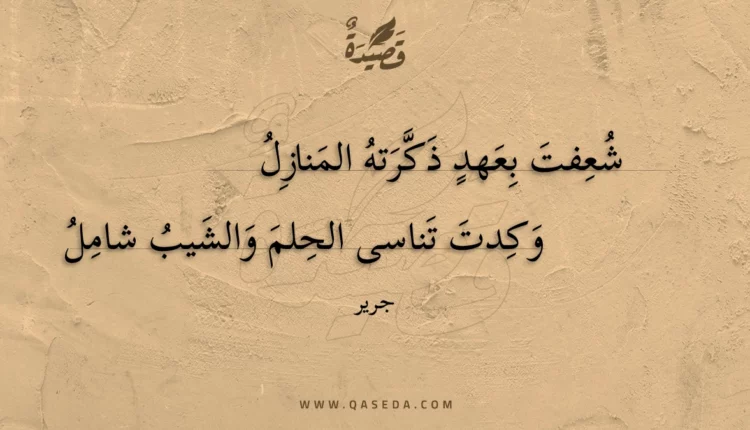 قَصِيْدَةٌ
شُعِفتَ بِعَهدٍ ذَكَّرَتهُ المَنازِلُ
وَكِدتَ تَناسى الحِلمَ وَالشَيبُ شامِلُ
جرير
WWW.QASEDA.COM